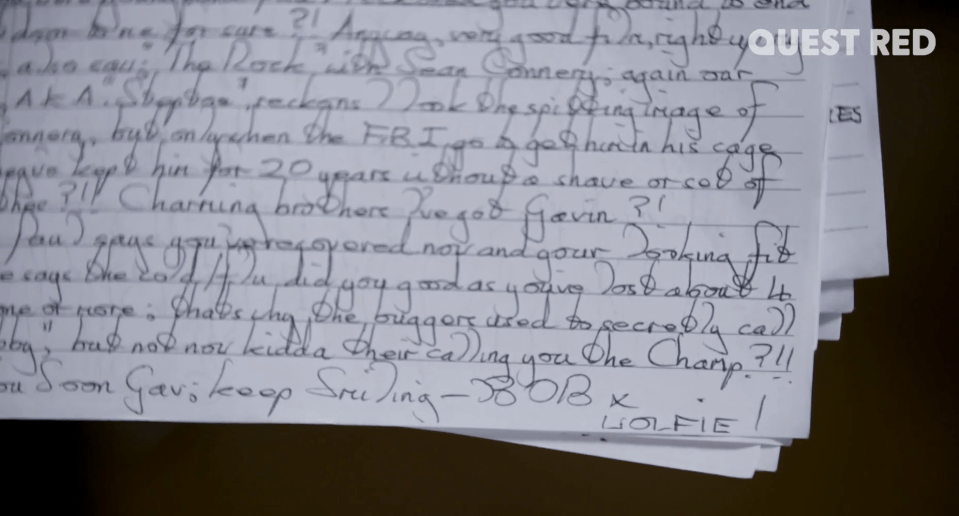 for sure ?! Anyway, very good film, right up
QUEST RED
also saw; "The Rock" with Sean Connery; again our
A.K.A. reckons I look the spitting image of
onnery, but only when the FBI go to get him in his cage
kept him for 20 years without a shave or cob of
?!! Charming brothers I've got Gavin ?!
Paul says you've recovered now and your looking fit
e says the cold/flu did you good as youve lost about 4
ne or more; thats why the buggers used to secretly call
bby", but not now kidda their calling you the Champ. ?!!
ou Soon Gav; keep Smiling – BOB x
WOLFIE!
ES